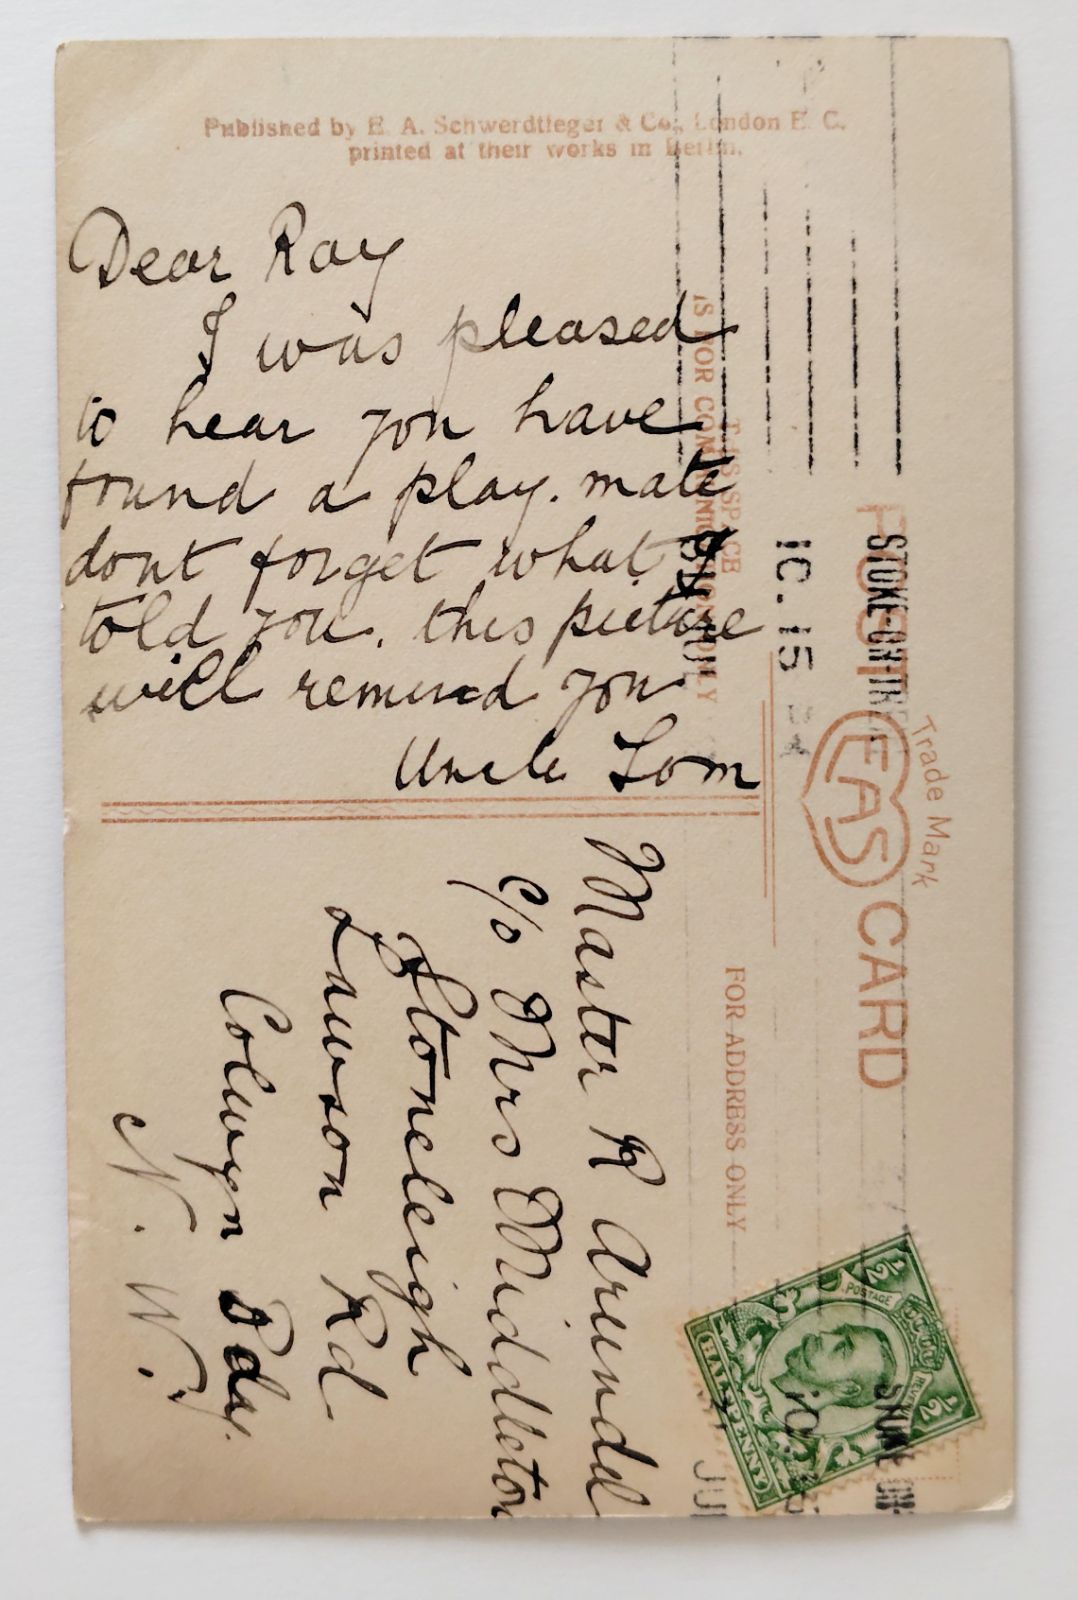 Published by E. A. Schwerdtfeger & Co., London E. C.
printed at their works in Berlin.
Dear Ray
I was pleased
to hear you have
found a play. mate
dont forget what I
told you. this picture
will remind you
Uncle Tom
THIS SPACE
IS FOR COMMUNICATION ONLY
POST CARD
EAS
Trade Mark
FOR ADDRESS ONLY
STOKE-ON-TRENT
10.15
JU
Master R Arundel
c/o Mrs Middleton
Stoneleigh
Lawson Rd
Colwyn Bay.
N. W.
1/2 1/2
POSTAGE
REVENUE
HALFPENNY
STOKE ON
10
JU